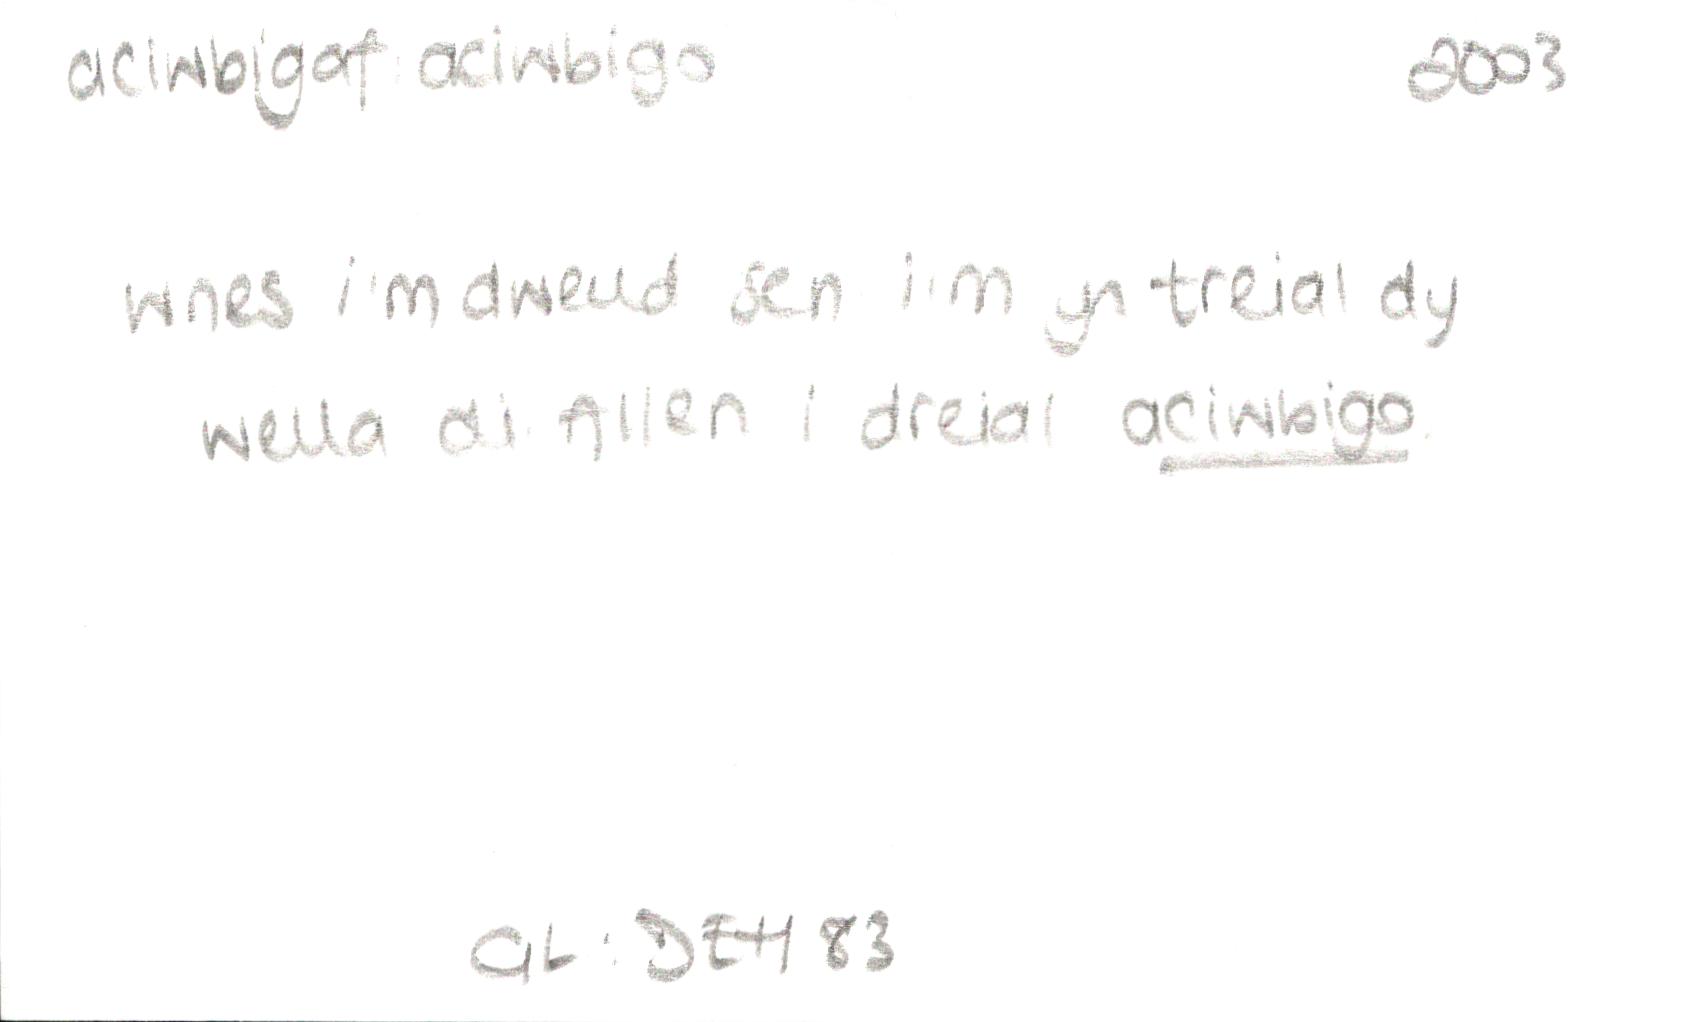 aciwbigaf: aciwbigo 2003
wnes i'm dweud i'm yn treial dy
wella di. Allen i dreial aciwbigo.
GL: DEH 83